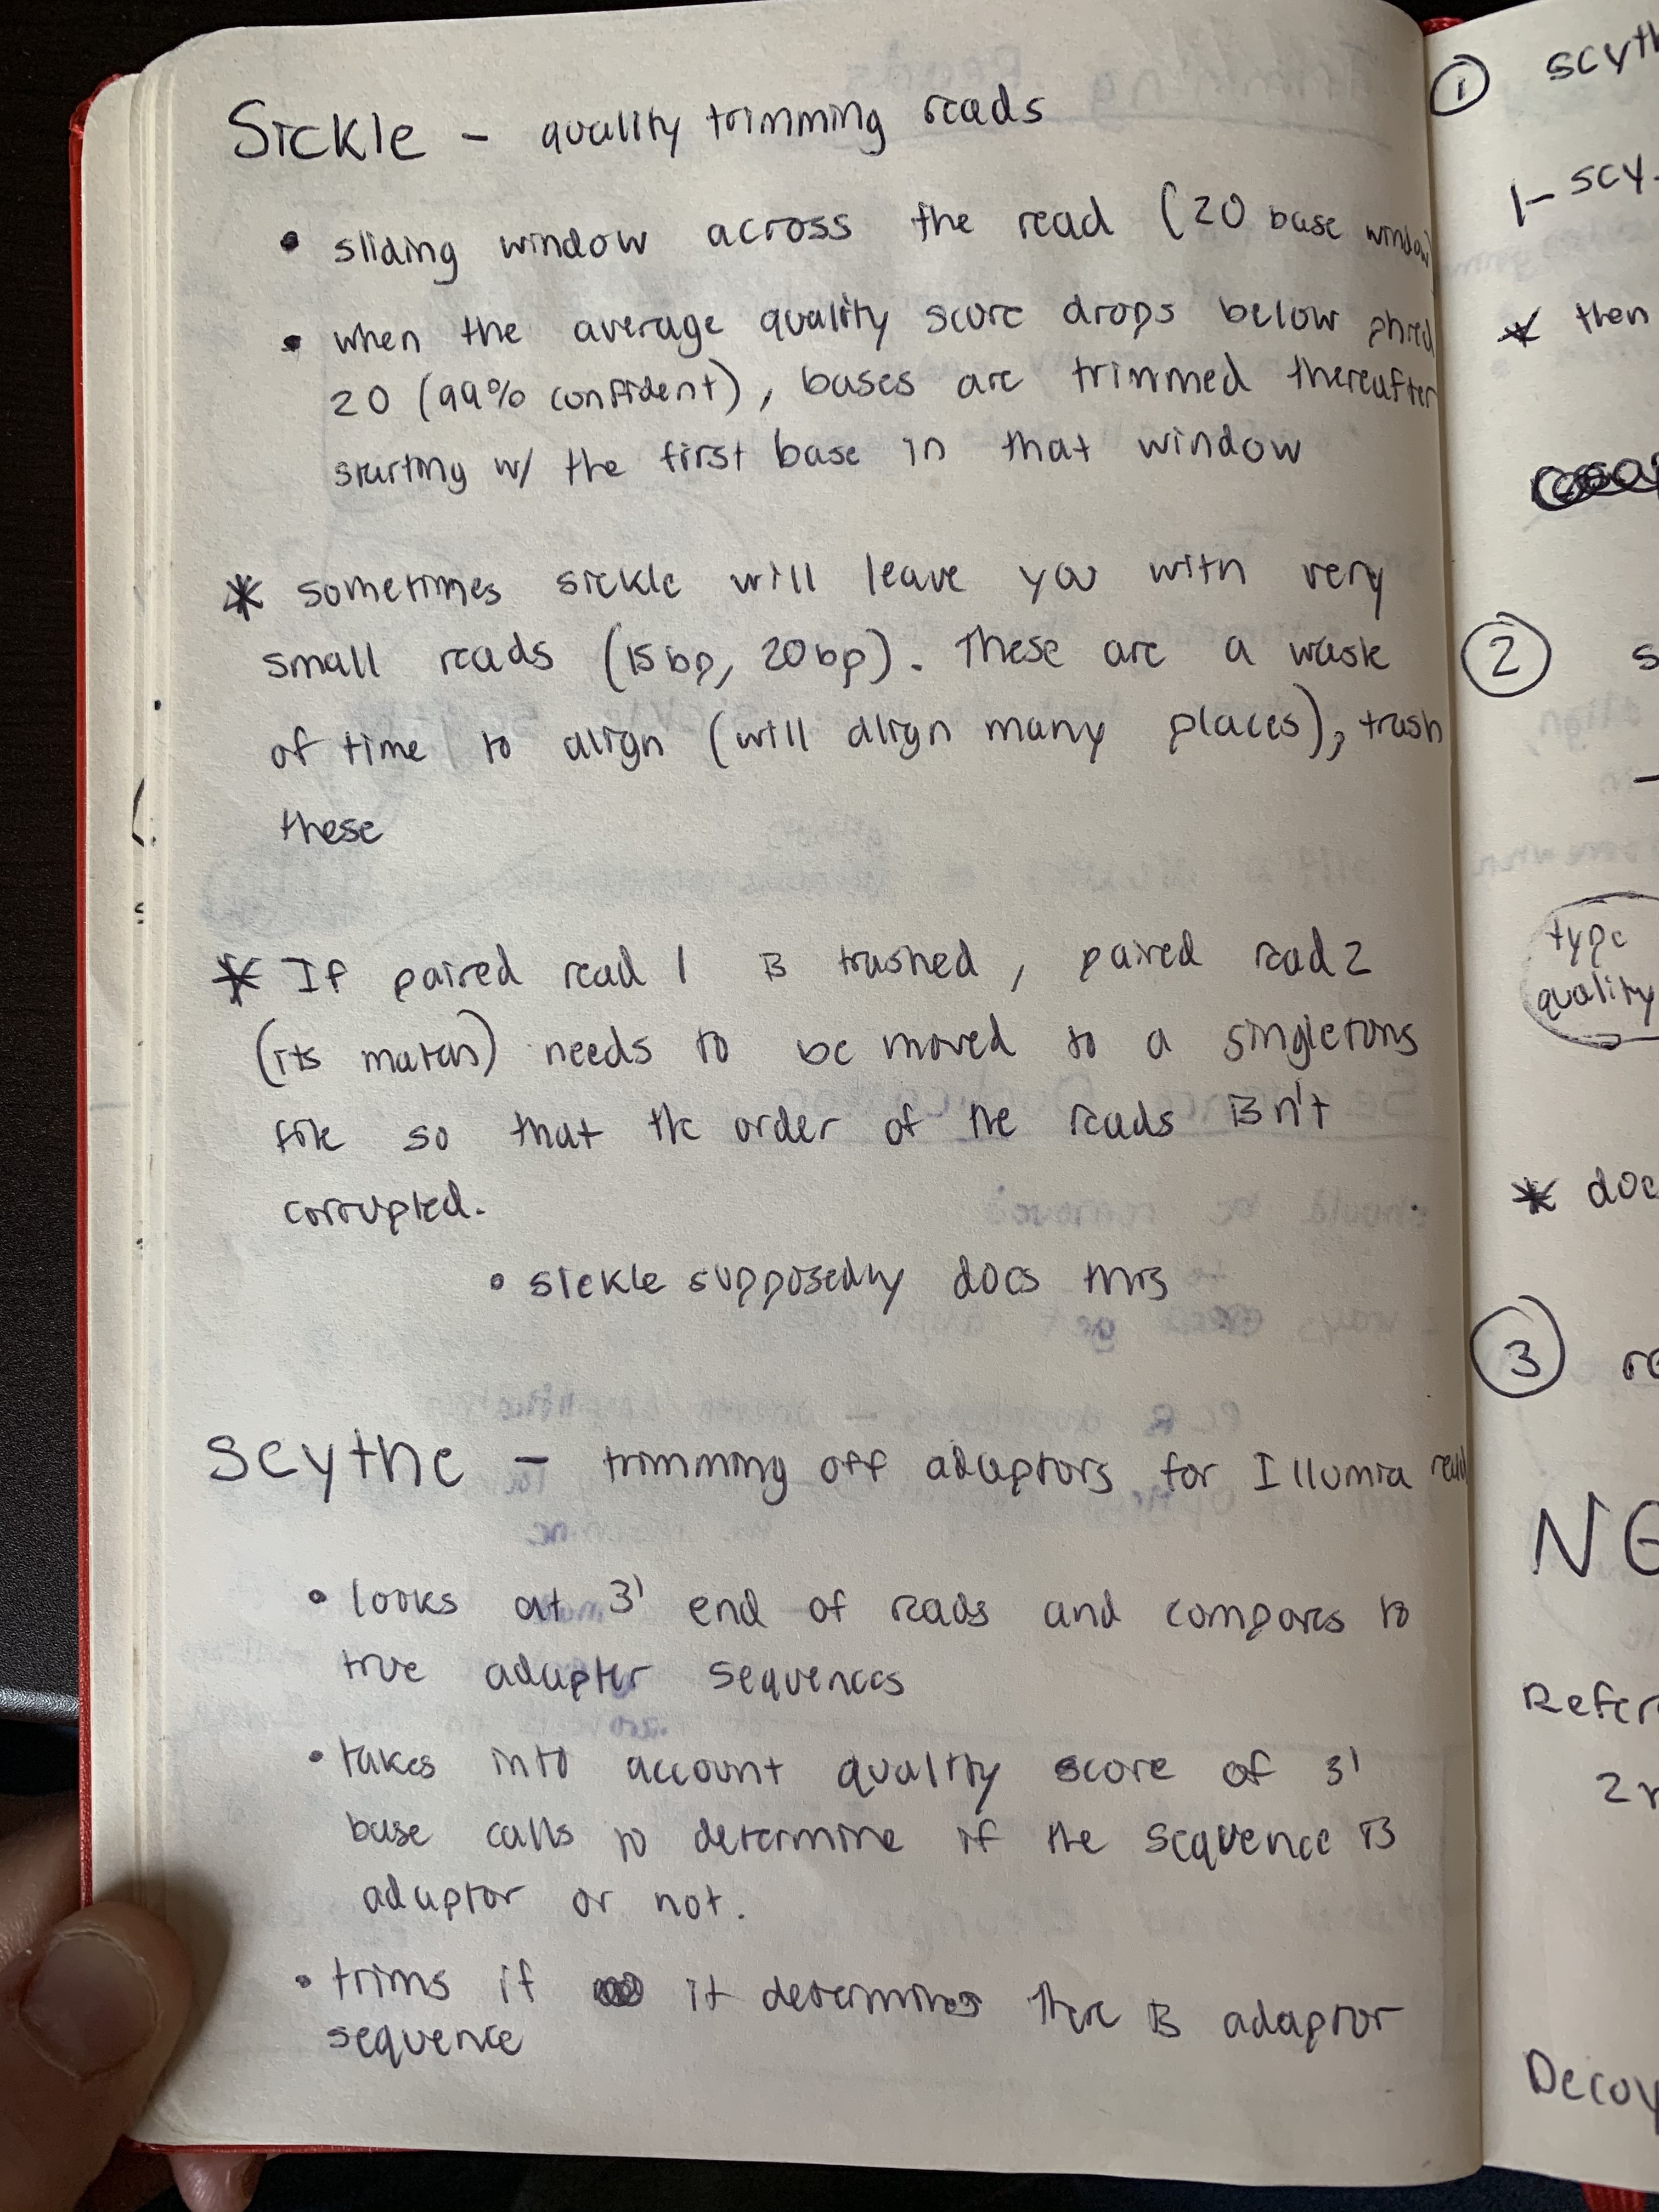 Sickle - quality trimming reads
• sliding window across the read (20 base window
• when the average quality score drops below phred
20 (99% confident), bases are trimmed thereafter
starting w/ the first base in that window
* sometimes sickle will leave you with very
small reads (15bp, 20bp). These are a waste
of time to align (will align many places), trash
these
* If paired read 1 is trashed, paired read 2
(its match) needs to be moved to a singletons
file so that the order of the reads isn't
corrupted.
• sickle supposedly does this
Scythe - trimming off adaptors for Illumia read
• looks at 3' end of reads and compares to
true adapter sequences
• takes into account quality score of 3'
base calls to determine if the sequence is
adaptor or not.
• trims if it determines there is adaptor
sequence
①
1-
* then
②
type
quality
*
③
2